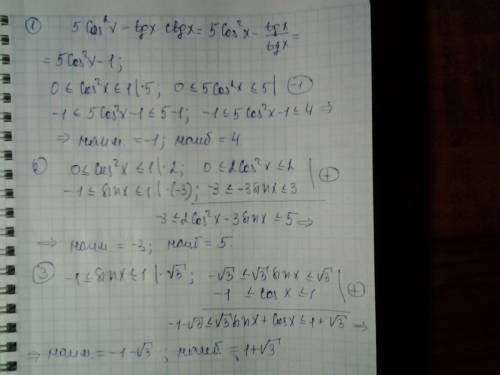 ① 5cos²x - tgx·ctgx = 5cos²x - tgx/tgx =
= 5cos²x - 1;
0 ≤ cos²x ≤ 1 |·5; 0 ≤ 5cos²x ≤ 5 | -1
-1 ≤ 5cos²x - 1 ≤ 5-1; -1 ≤ 5cos²x - 1 ≤ 4 ⇒
⇒ наим. = -1; наиб = 4
② 0 ≤ cos²x ≤ 1 |·2; 0 ≤ 2cos²x ≤ 2
-1 ≤ sinx ≤ 1 |·(-3); -3 ≤ -3sinx ≤ 3 | +
-3 ≤ 2cos²x - 3sinx ≤ 5 ⇒
⇒ наим = -3; наиб = 5.
③ -1 ≤ sinx ≤ 1 |·√3; -√3 ≤ √3 sinx ≤ √3
-1 ≤ cosx ≤ 1 | +
-1-√3 ≤ √3 sinx + cosx ≤ 1+√3 ⇒
⇒ наим. = -1-√3; наиб = 1+√3